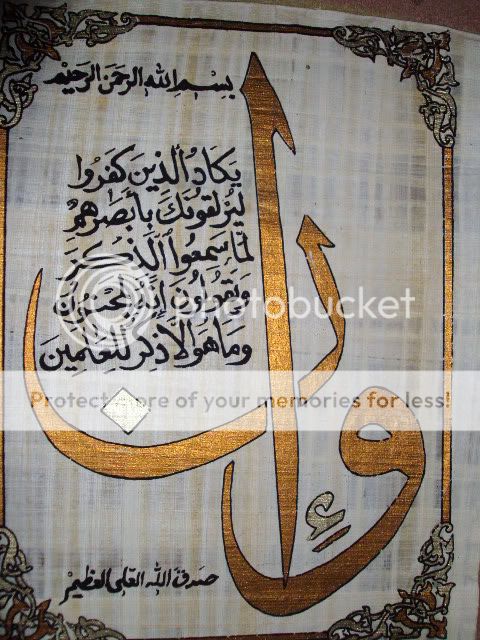 بسم الله الرحمن الرحيم
وإن
يكاد الذين كفروا
ليزلقونك بأبصرهم
لما سمعوا الذكر
ويقولون إنه لمجنون
وما هو إلا ذكر للعلمين
صدق الله العلي العظيم
photobucket
Protect more of your memories for less!